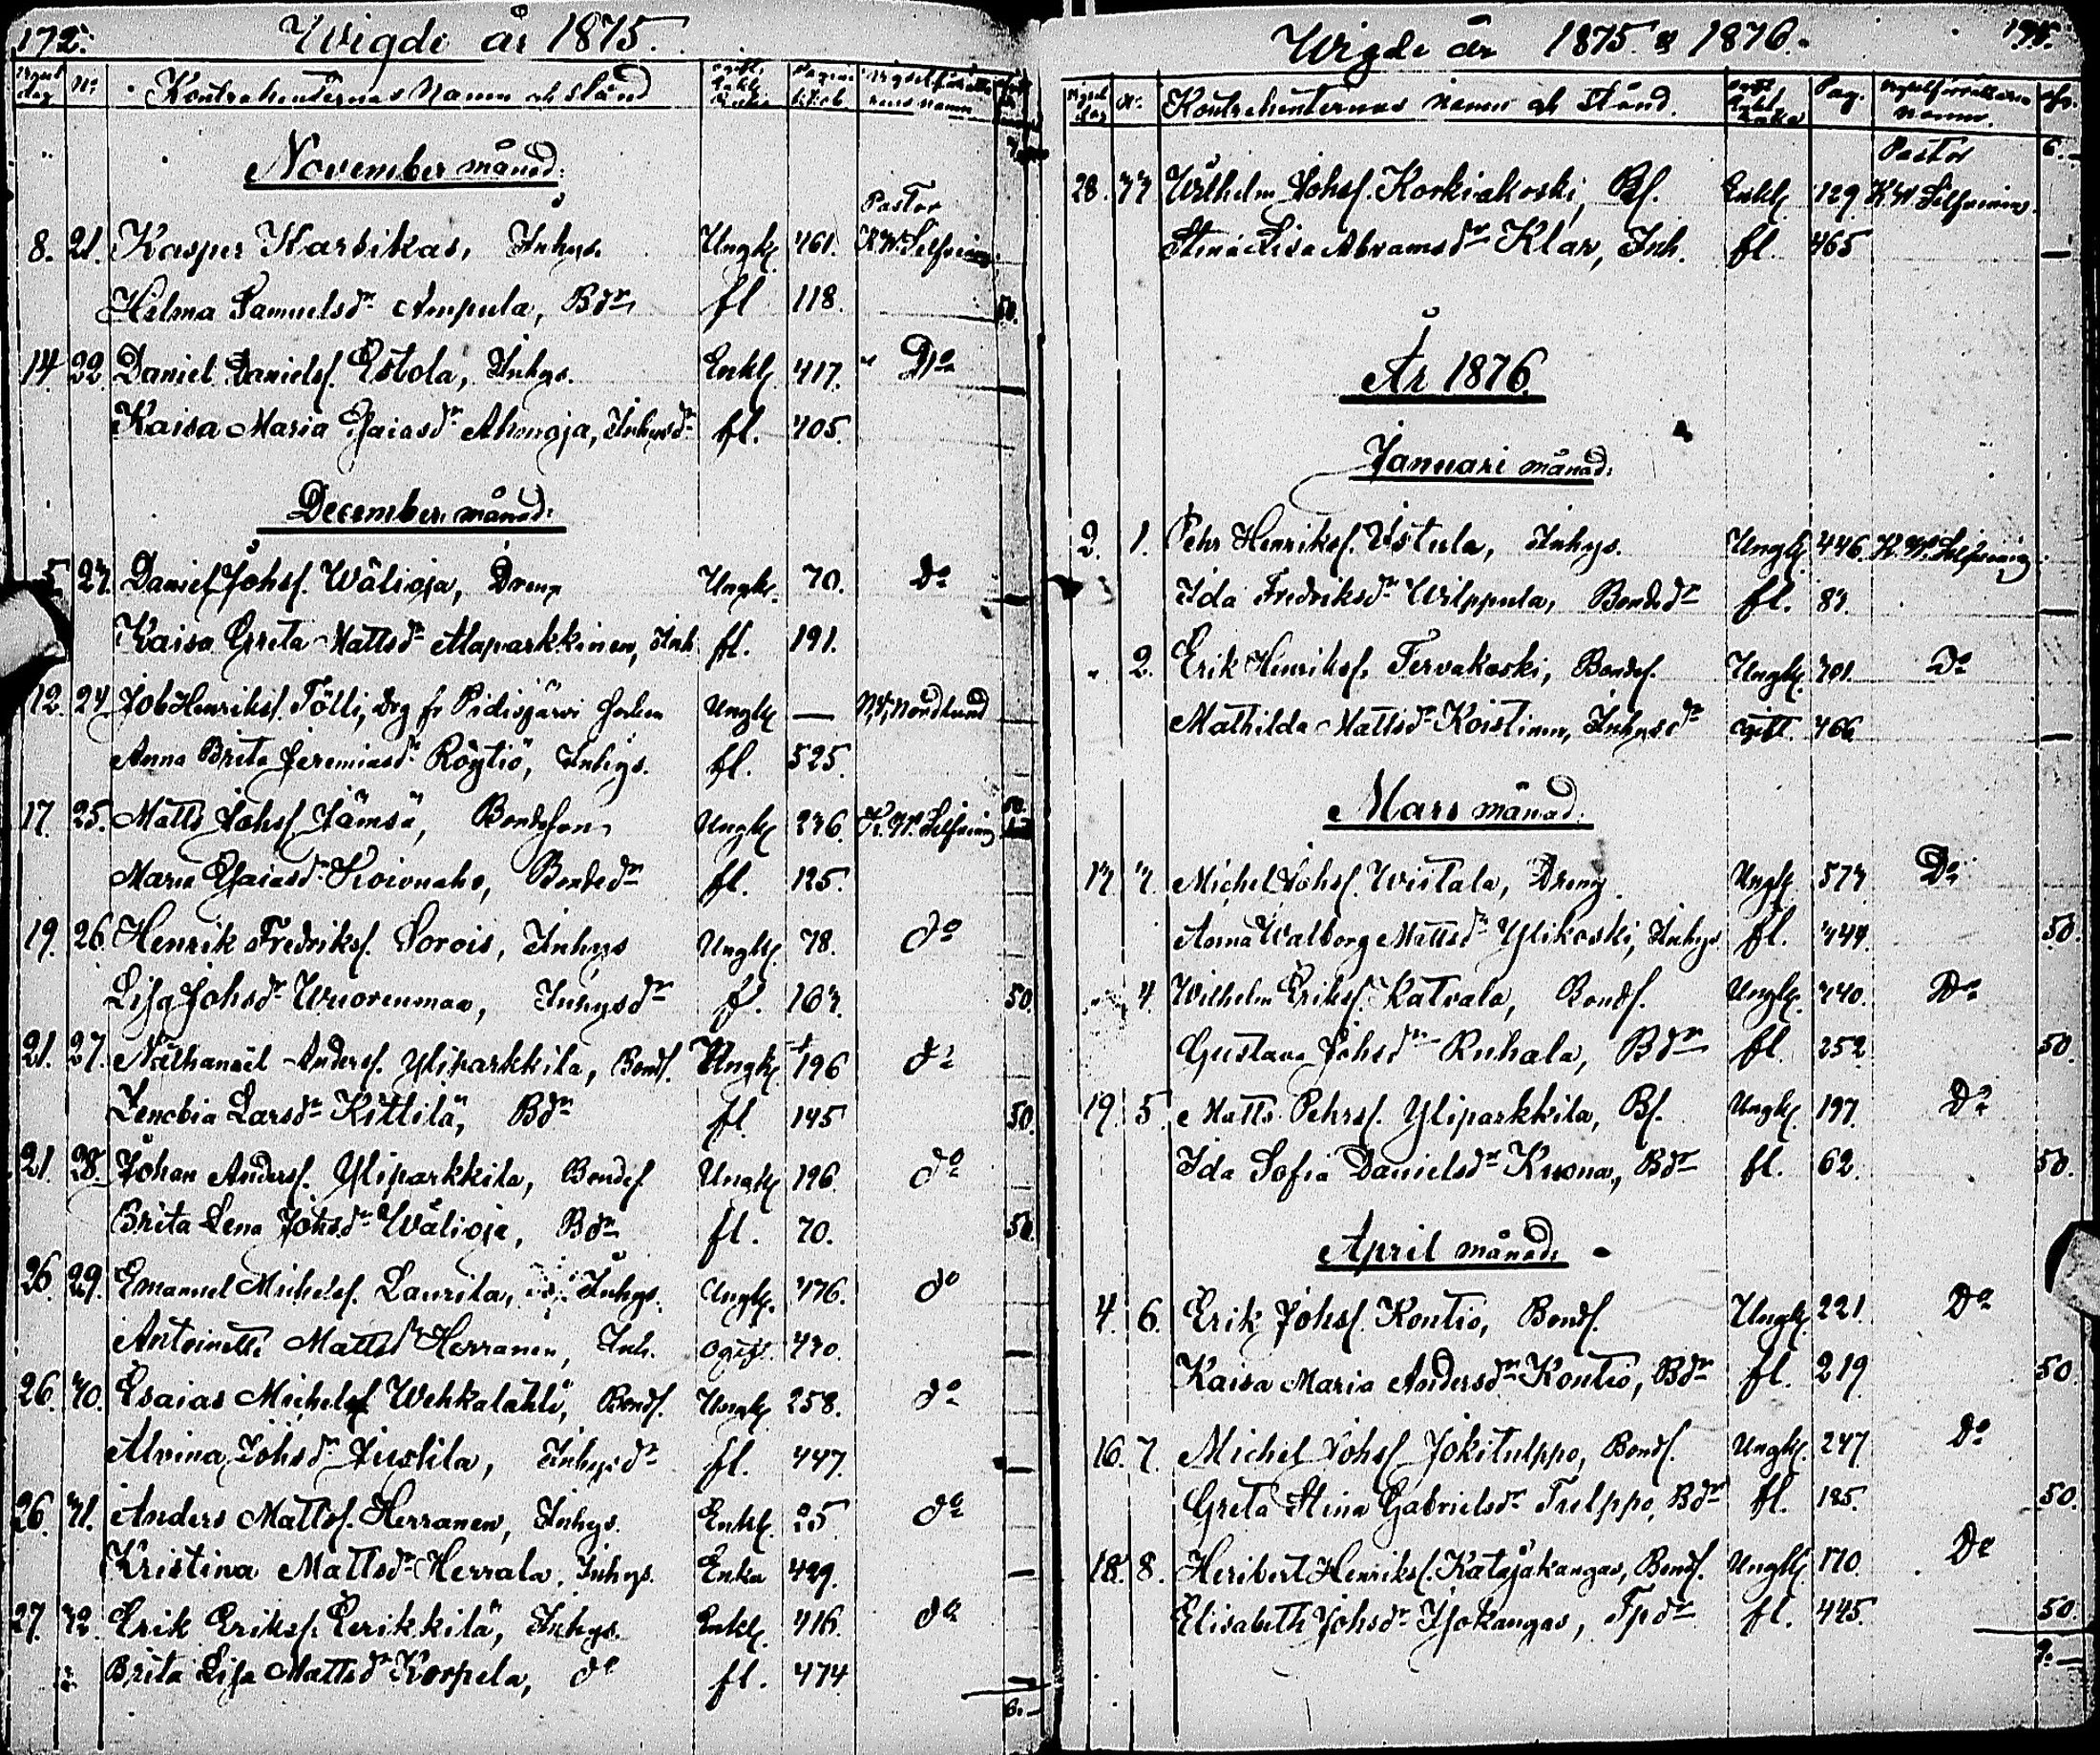 172.
Wigde år 1875.
No Kontrahenternas Namn och stånd
November månad:
Pastor
8. 21. Kasper Karsikas, Inhys. Ungk. 461. K.W. Selfving
Helma Samuelsdr Ampula, Bdr fl 118. 50.
14 22 Daniel Danielsf. Estola, Inhys. Enkl. 417. Do
Kaisa Maria Esaiasdr Ahonoja, Inhysdr fl. 405.
December månad:
5. 23. Daniel Johsf. Wälioja, Dreng Ungk. 70. do
Kaisa Greta Mattsdr Alaparkkinen, Inh fl. 191.
12. 24 Job Henriksf. Tölli, Drg fr Pidisjärvi Ungk — Nordlund
Anna Brita Jeremiasdr Röytiö, Inhys. fl. 525.
17. 25. Matts Johsf Jämsä, Bondeson Ungk 236 K.W. Selfving 50.
Maria Esaiasdr Koivuaho, Bondedr fl. 125.
19. 26. Henrik Fredriksf. Sorois, Inhys Ungk. 78. do
Lisa Johsdr Wuorenmaa, Inhysdr fl. 163. 50.
21. 27. Nathanaël Andersf. Yliparkkila, Bondf. Ungk 196 do
Zenobia Larsdr Kittilä, Bdr fl 145 50.
21. 28. Johan Andersf. Yliparkkila, Bondef Ungk 196. do
Brita Lena Johsdr Wälioja, Bdr fl. 70. 50.
26. 29. Emanuel Michelsf. Laurila, Inhys. Ungk. 376. do
Antoinette Mattsdr Herranen, Inh. ogift. 430.
26. 30. Esaias Michelsf Wehkalahti, Bondf. Ungk 258. do
Alvina Johsdr Juslila, Inhysdr fl. 447.
26. 31. Anders Mattsf. Herranen, Inhys. Enkl. 25 do
Kristina Mattsdr Herrala, Inhys. Enka 429.
27. 32. Erik Eriksf. Eerikkilä, Inhys. Enkl. 416. do
Brita Lisa Mattsdr Korpela, do fl. 474
6.—
Wigde år 1875 & 1876.
No Kontrahenternas namn och stånd. Pag.
Pastor 6.—
28. 33 Wilhelm Johsf. Korkiakoski, Bf. Enkl. 129 K.W. Selfving
Stina Lisa Abramsdr Klar, Inh. fl. 465 —
År 1876.
Januari månad:
2. 1. Pehr Henriksf. Ystula, Inhys. Ungk. 446. K.W. Selfving
Ida Fredriksdr Wilppula, Bondedr fl. 83. —
" 2. Erik Henriksf. Tervakoski, Bondef. Ungk. 301. Do
Mathilda Mattsdr Koistinen, Inhysdr ogift. 466 —
Mars månad.
13 3. Michel Johsf. Wistala, Dreng Ungk. 573 Do
Anna Walborg Mattsdr Ylikoski, Inhys fl. 444. 50.
4 Wilhelm Eriksf. Katvala, Bondf. Ungk. 340. Do
Gustava Johsdr Ruhala, Bdr fl 252 50.
19. 5. Matts Pehrsf. Yliparkkila, Bf. Ungk. 197. Do
Ida Sofia Danielsdr Kuona, Bdr fl. 62. 50.
April månad.
4. 6. Erik Johsf. Kontio, Bondf. Ungk. 221. Do
Kaisa Maria Andersdr Kontio, Bdr fl. 219 50.
16. 7. Michel Johsf Jokitulppo, Bondf. Ungk. 247 Do
Greta Stina Gabrielsdr Tulppo, Bdr fl. 185. 50.
18. 8. Heribert Henriksf. Katajakangas, Bondf. Ungk. 170. Do
Elisabeth Johsdr Isokangas, Tpdr fl. 445. 50.